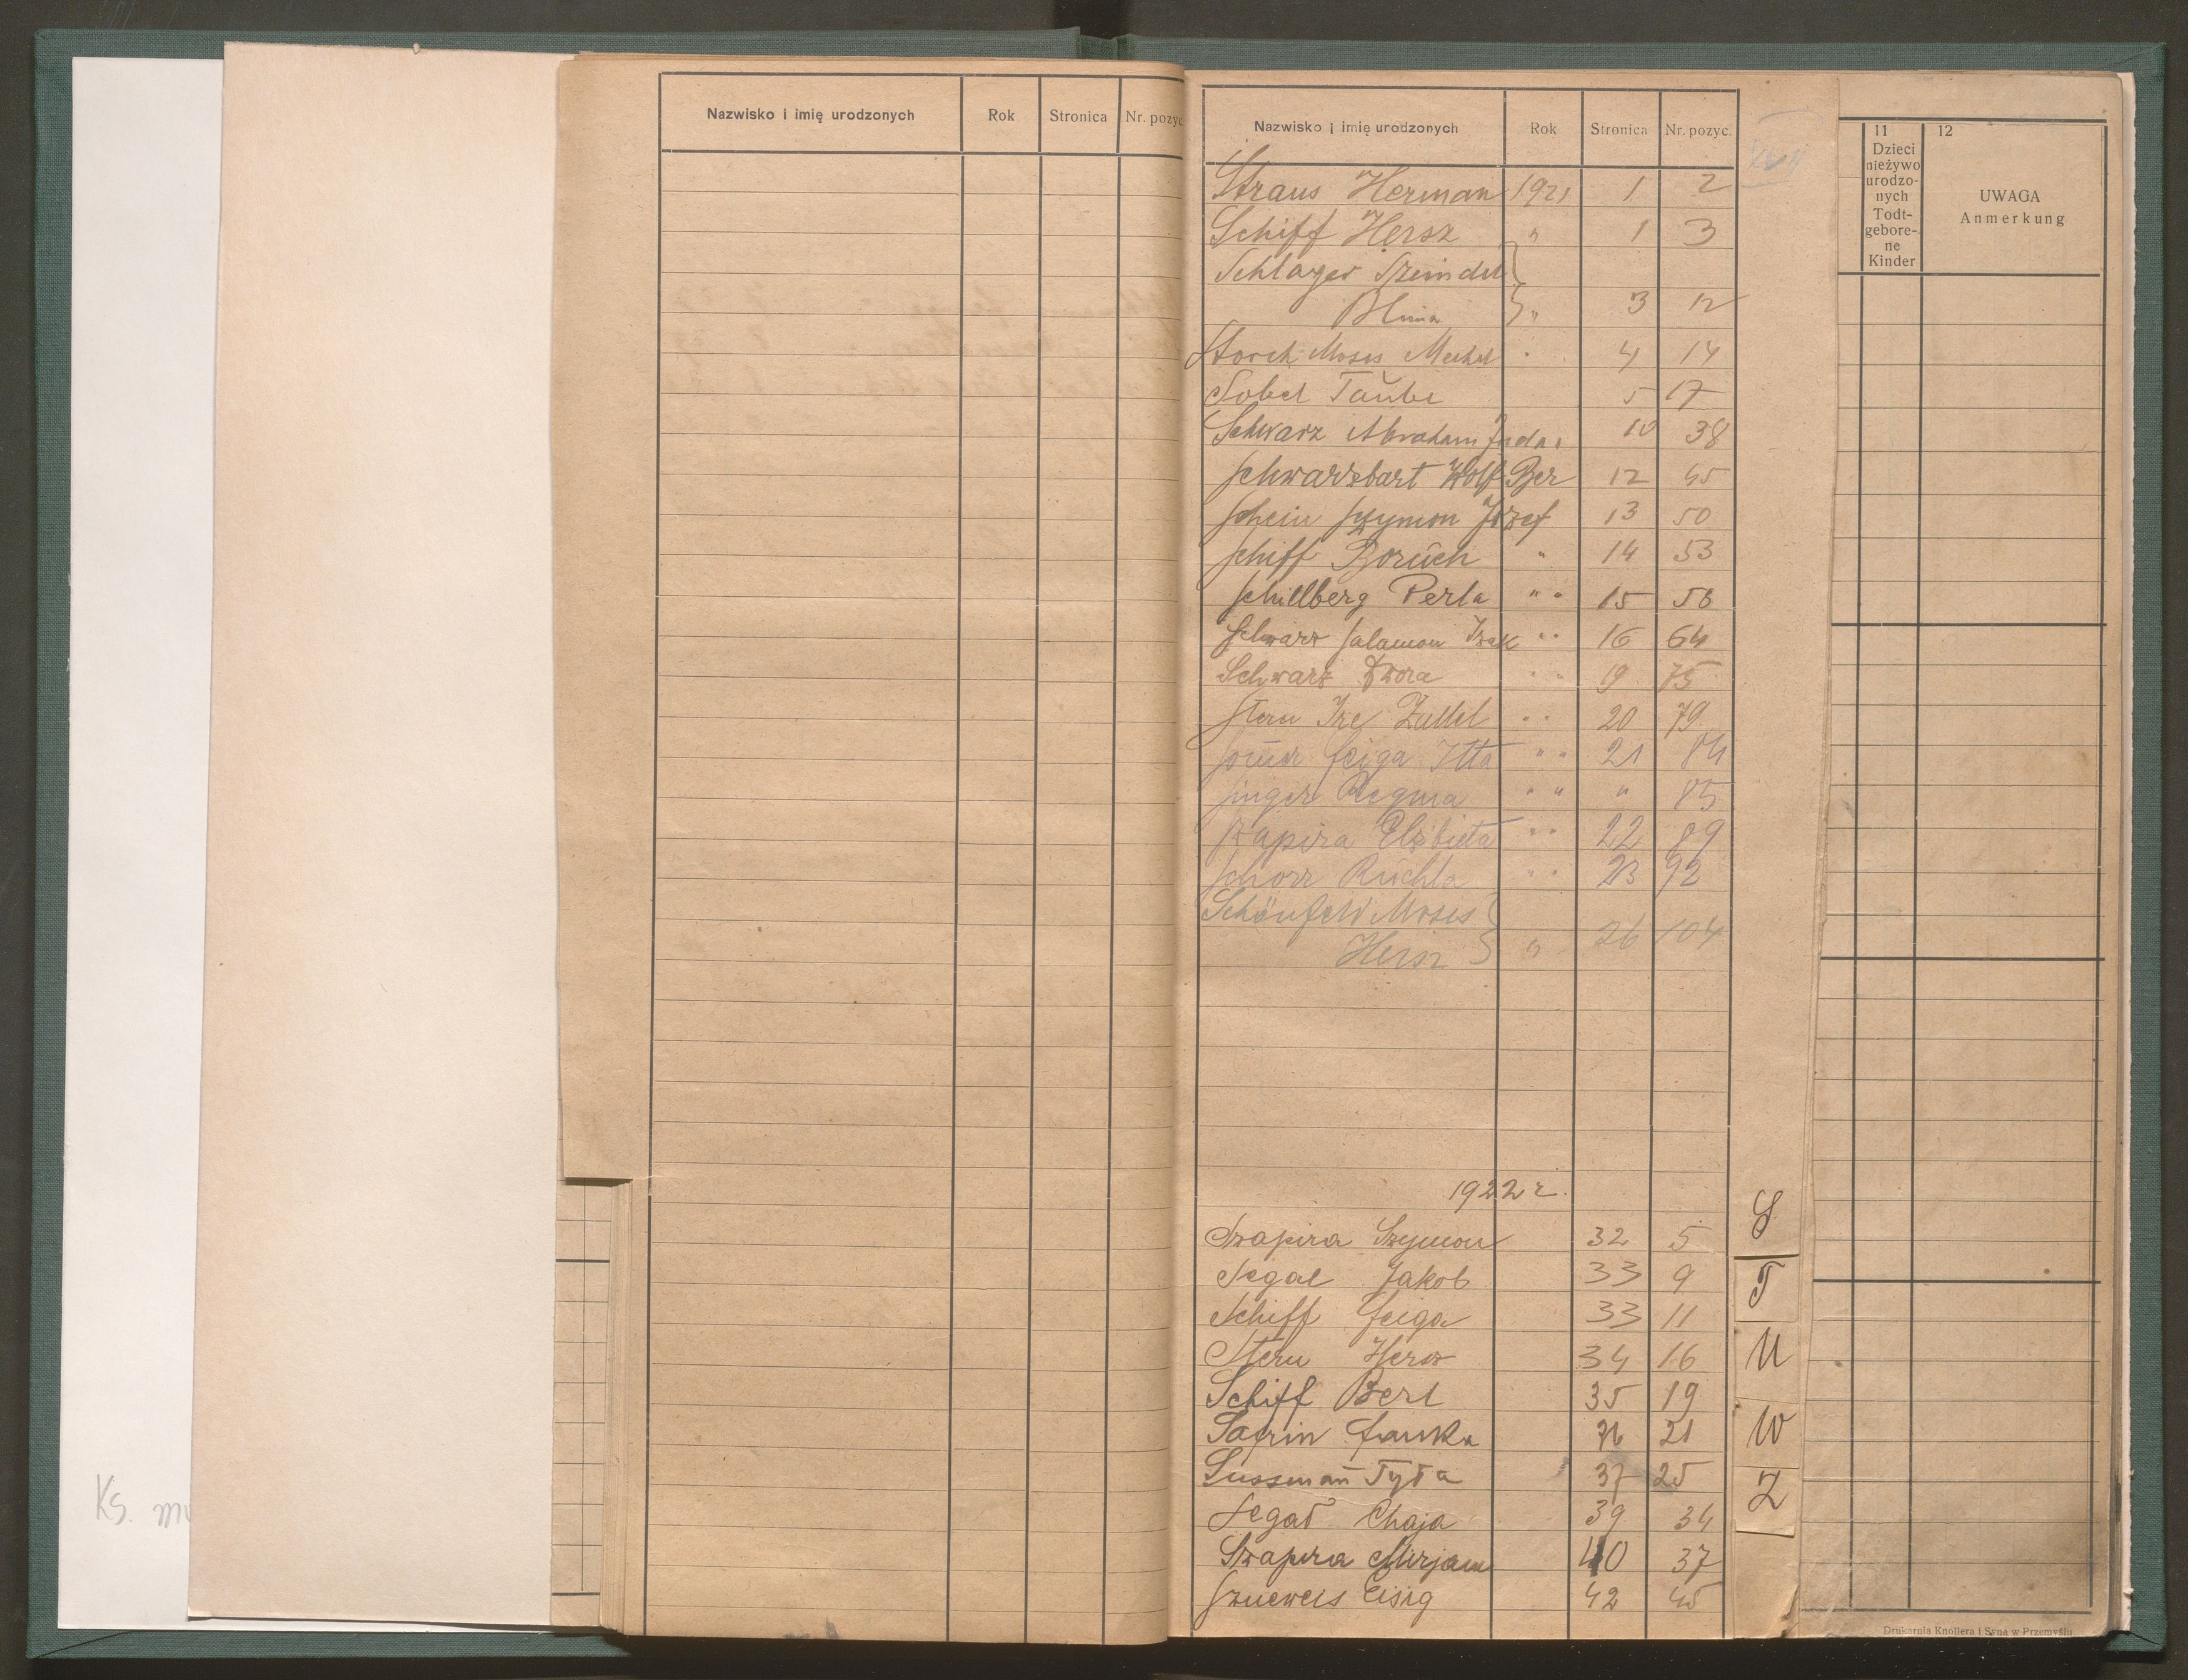 Nazwisko i imię urodzonych Rok Stronica Nr. pozyc
Nazwisko i imię urodzonych Rok Stronica Nr. pozyc.
Straus Herman 1921 1 2
Schiff Hersz " 1 3
Schlager Szeindel
Blima " 3 12
Storch Moses Mechel " 4 14
Sobel Taŭbe 5 17
Schwarz Abraham Juda " 10 38
Schwarzbart Wolf Ber 12 45
Schein Szymon Józef 13 50
Schiff Borŭch " 14 53
Schillberg Perla " " 15 56
Schwarz Salamon Izak " " 16 64
Schwarz Dwora " " 19 75
Stern Zullel " " 20 79
Feiga Itta " " 21 84
Singer Regina " " " 85
Szapira Elżbieta " " 22 89
Schorr Rŭchla " " 23 92
Schönfeld Moses
Hersz " 26 104
1922 r.
Szapira Szymon 32 5
Segal Jakob 33 9
Schiff Feiga 33 11
Stern Hersz 34 16
Schiff Berl 35 19
Safrin Fanka 36 21
Sussman Tyla 37 25
Segal Chaja 39 34
Szapira Mirjam 40 37
Eisig 42 45
S
T
U
W
Z
11
Dzieci
nieżywo
urodzo-
nych
Todt-
gebore-
ne
Kinder
12
UWAGA
Anmerkung
Ks.
Drukarnia Knollera i Syna w Przemyślu